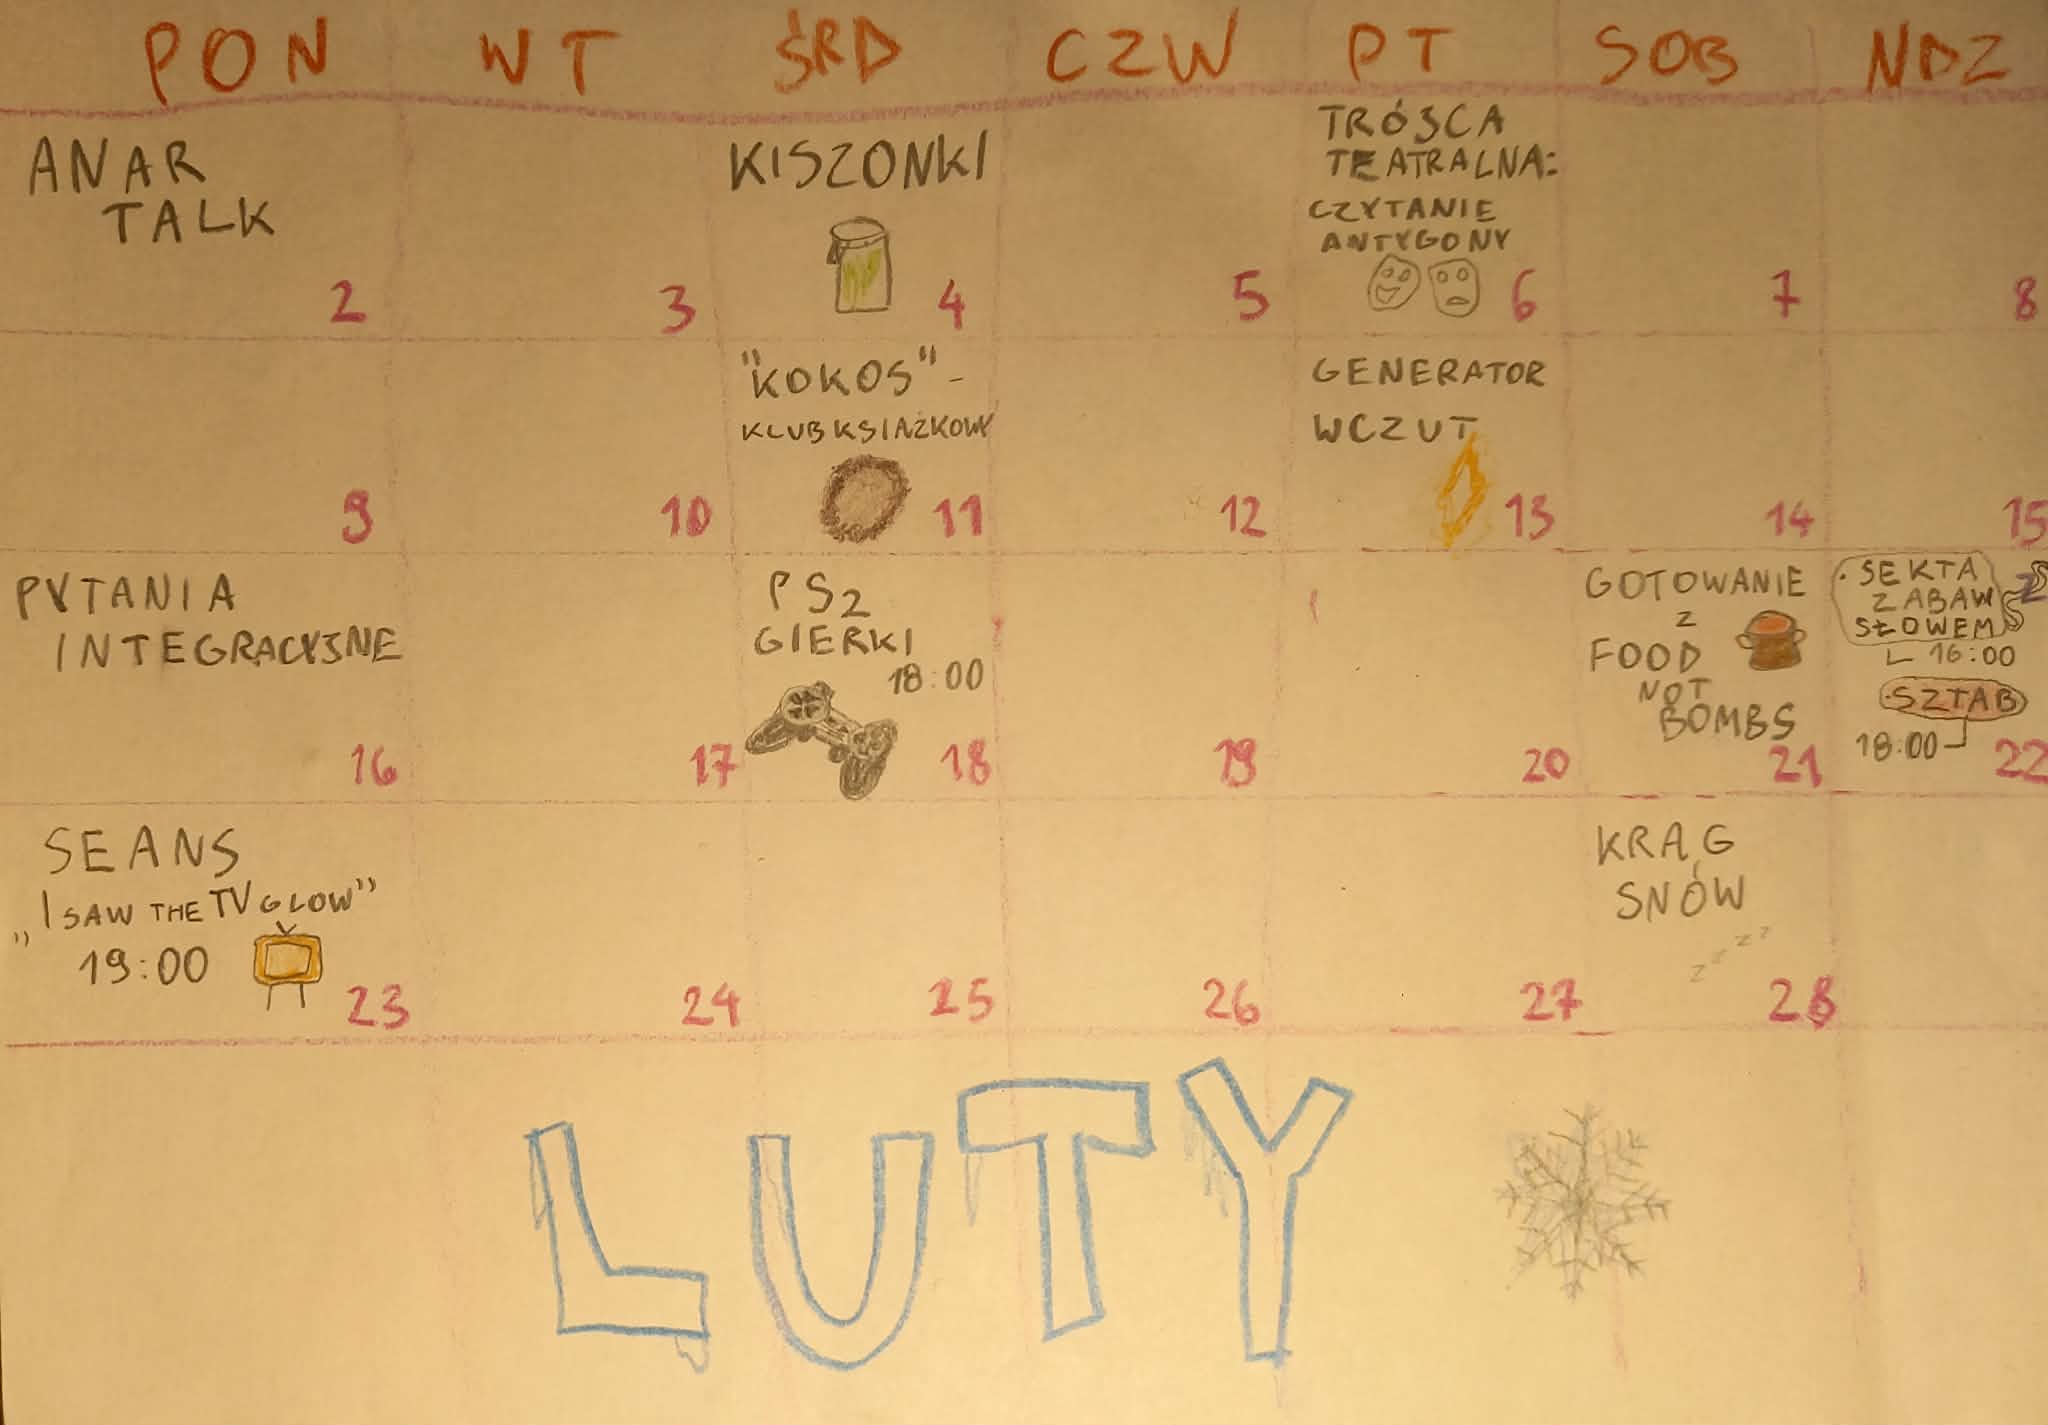 PON WT ŚRD CZW PT SOB NDZ
ANAR
TALK
2
3
KISZONKI
4
5
TRÓJCA
TEATRALNA:
CZYTANIE
ANTYGONY
6
7
8
9
10
"KOKOS" -
KLUB KSIĄŻKOWY
11
12
GENERATOR
WCZUT
13
14
15
PYTANIA
INTEGRACYJNE
16
17
PS2
GIERKI
18:00
18
19
20
GOTOWANIE
Z
FOOD
NOT
BOMBS
21
· SEKTA
ZABAW
SŁOWEM
16:00
· SZTAB
18:00
22
SEANS
„I SAW THE TV GLOW”
19:00
23
24
25
26
27
KRĄG
SNÓW
z z z z
28
LUTY